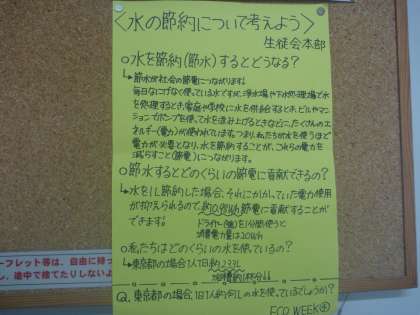 〈水の節約について考えよう〉
生徒会本部
○水を節約(節水)するとどうなる?
↳節水が社会の節電につながります!
毎日なにげなく使っている水ですが、浄水場や下水処理場で水
を処理するとき、家庭や学校に水を供給するとき、ビルやマン
ションでポンプを使って水を汲み上げるときなどに、たくさんのエ
ネルギー(電力)が使われています。つまり、私たちが水を使うほど
電力が必要となり、水を節約することが、これらの電力を
減らすこと(節電)につながります。
○節水するとどのくらいの節電に貢献できるの?
↳水を1L節約した場合、それにかかしていた電力使用
が抑えられるので、約 節電に貢献することが
できます。
ドライヤー(強)を1分間使うと
消費電力量は20Wh
○私たちはどのくらいの水を使っているの?
↳東京都の場合1人1日約233L
Q.東京都の場合、1日1人約何Lの水を使っているでしょうか?
ECO WEEK④
ーフレット等は、自由に持っ
し、途中で捨てたりしないよ